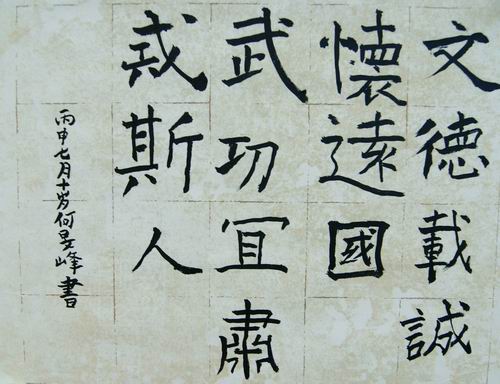 文德載誠
懷遠國
武功冝肅
戒斯人
丙申七月十岁何昱峰書